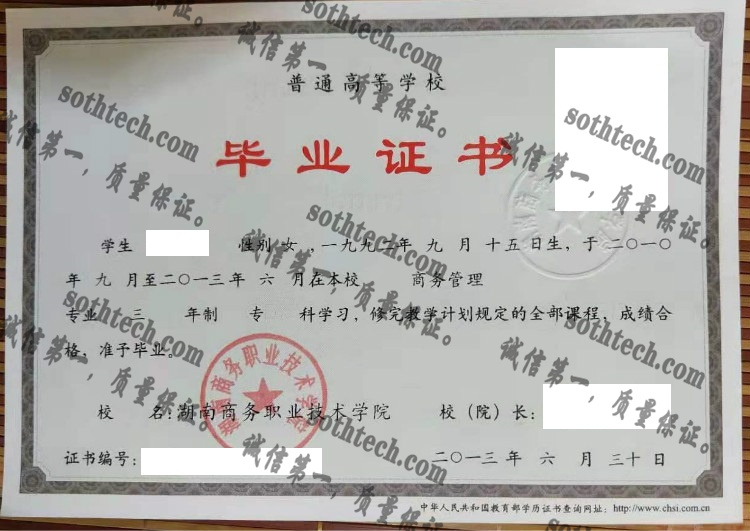 普通高等学校
毕业证书
学生 性别 女 ，一九九二年 九 月 十五 日生，于 二〇一〇
年 九 月至二〇一三年 六 月在本校 商务管理
专业 三 年制 专 科学习，修完教学计划规定的全部课程，成绩合
格，准予毕业。
校 名：湖南商务职业技术学院 校（院）长：
湖南商务职业技术学院
证书编号： 二〇一三 年 六 月 三十 日
中华人民共和国教育部学历证书查询网址：http://www.chsi.com.cn
sothtech.com
诚信第一，质量保证。
sothtech.com
诚信第一，质量保证。
sothtech.com
诚信第一，质量保证。
sothtech.com
诚信第一，质量保证。
sothtech.com
诚信第一，质量保证。
sothtech.com
诚信第一，质量保证。
sothtech.com
诚信第一，质量保证。